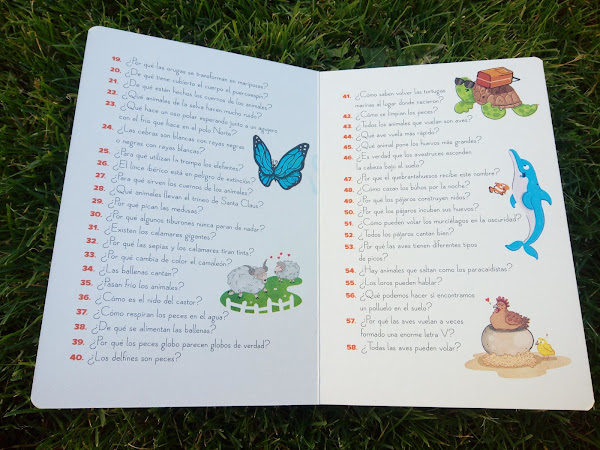 19. ¿Por qué las orugas se transforman en mariposas?
20. ¿De qué tiene cubierto el cuerpo el puercoespín?
21. ¿De qué están hechos los cuernos de los animales?
22. ¿Qué animales de la selva hacen mucho nado?
23. ¿Qué hace un oso polar esperando junto a un agujero
con el frío que hace en el polo Norte?
24. ¿Las cebras son blancas con rayas negras
o negras con rayas blancas?
25. ¿Para qué utilizan la trompa los elefantes?
26. ¿El lince ibérico está en peligro de extinción?
27. ¿Para qué sirven los cuernos de los animales?
28. ¿Qué animales llevan el trineo de Santa Claus?
29. ¿Por qué pican las medusas?
30. ¿Por qué algunos tiburones nunca paran de nadar?
31. ¿Existen los calamares gigantes?
32. ¿Por qué las sepias y los calamares tiran tinta?
33. ¿Por qué cambia de color el camaleón?
34. ¿Las ballenas cantan?
35. ¿Pasan frío los animales?
36. ¿Cómo es el nido del castor?
37. ¿Cómo respiran los peces en el agua?
38. ¿De qué se alimentan las ballenas?
39. ¿Por qué los peces globo parecen globos de verdad?
40. ¿Los delfines son peces?
41. ¿Cómo saben volver las tortugas
marinas al lugar donde nacieron?
42. ¿Cómo se limpian los peces?
43. ¿Todos los animales que vuelan son aves?
44. ¿Qué ave vuela más rápido?
45. ¿Qué animal pone los huevos más grandes?
46. ¿Es verdad que los avestruces esconden
la cabeza bajo el suelo?
47. ¿Por qué el quebrantahuesos recibe este nombre?
48. ¿Cómo cazan los búhos por la noche?
49. ¿Por qué los pájaros construyen nidos?
50. ¿Por qué los pájaros incuban sus huevos?
51. ¿Cómo pueden volar los murciélagos en la oscuridad?
52. ¿Todos los pájaros cantan bien?
53. ¿Por qué las aves tienen diferentes tipos
de picos?
54. ¿Hay animales que saltan como los paracaidistas?
55. ¿Los loros pueden hablar?
56. ¿Qué podemos hacer si encontramos
un polluelo en el suelo?
57. ¿Por qué las aves vuelan a veces
formado una enorme letra V?
58. ¿Todas las aves pueden volar?